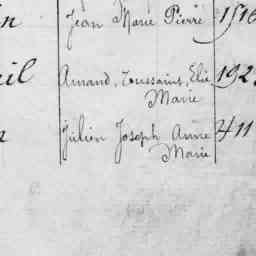 Jean Marie Pierre 1516
Amand, Toussaint, Elie 192
Marie
Julien Joseph Anne 411
Marie